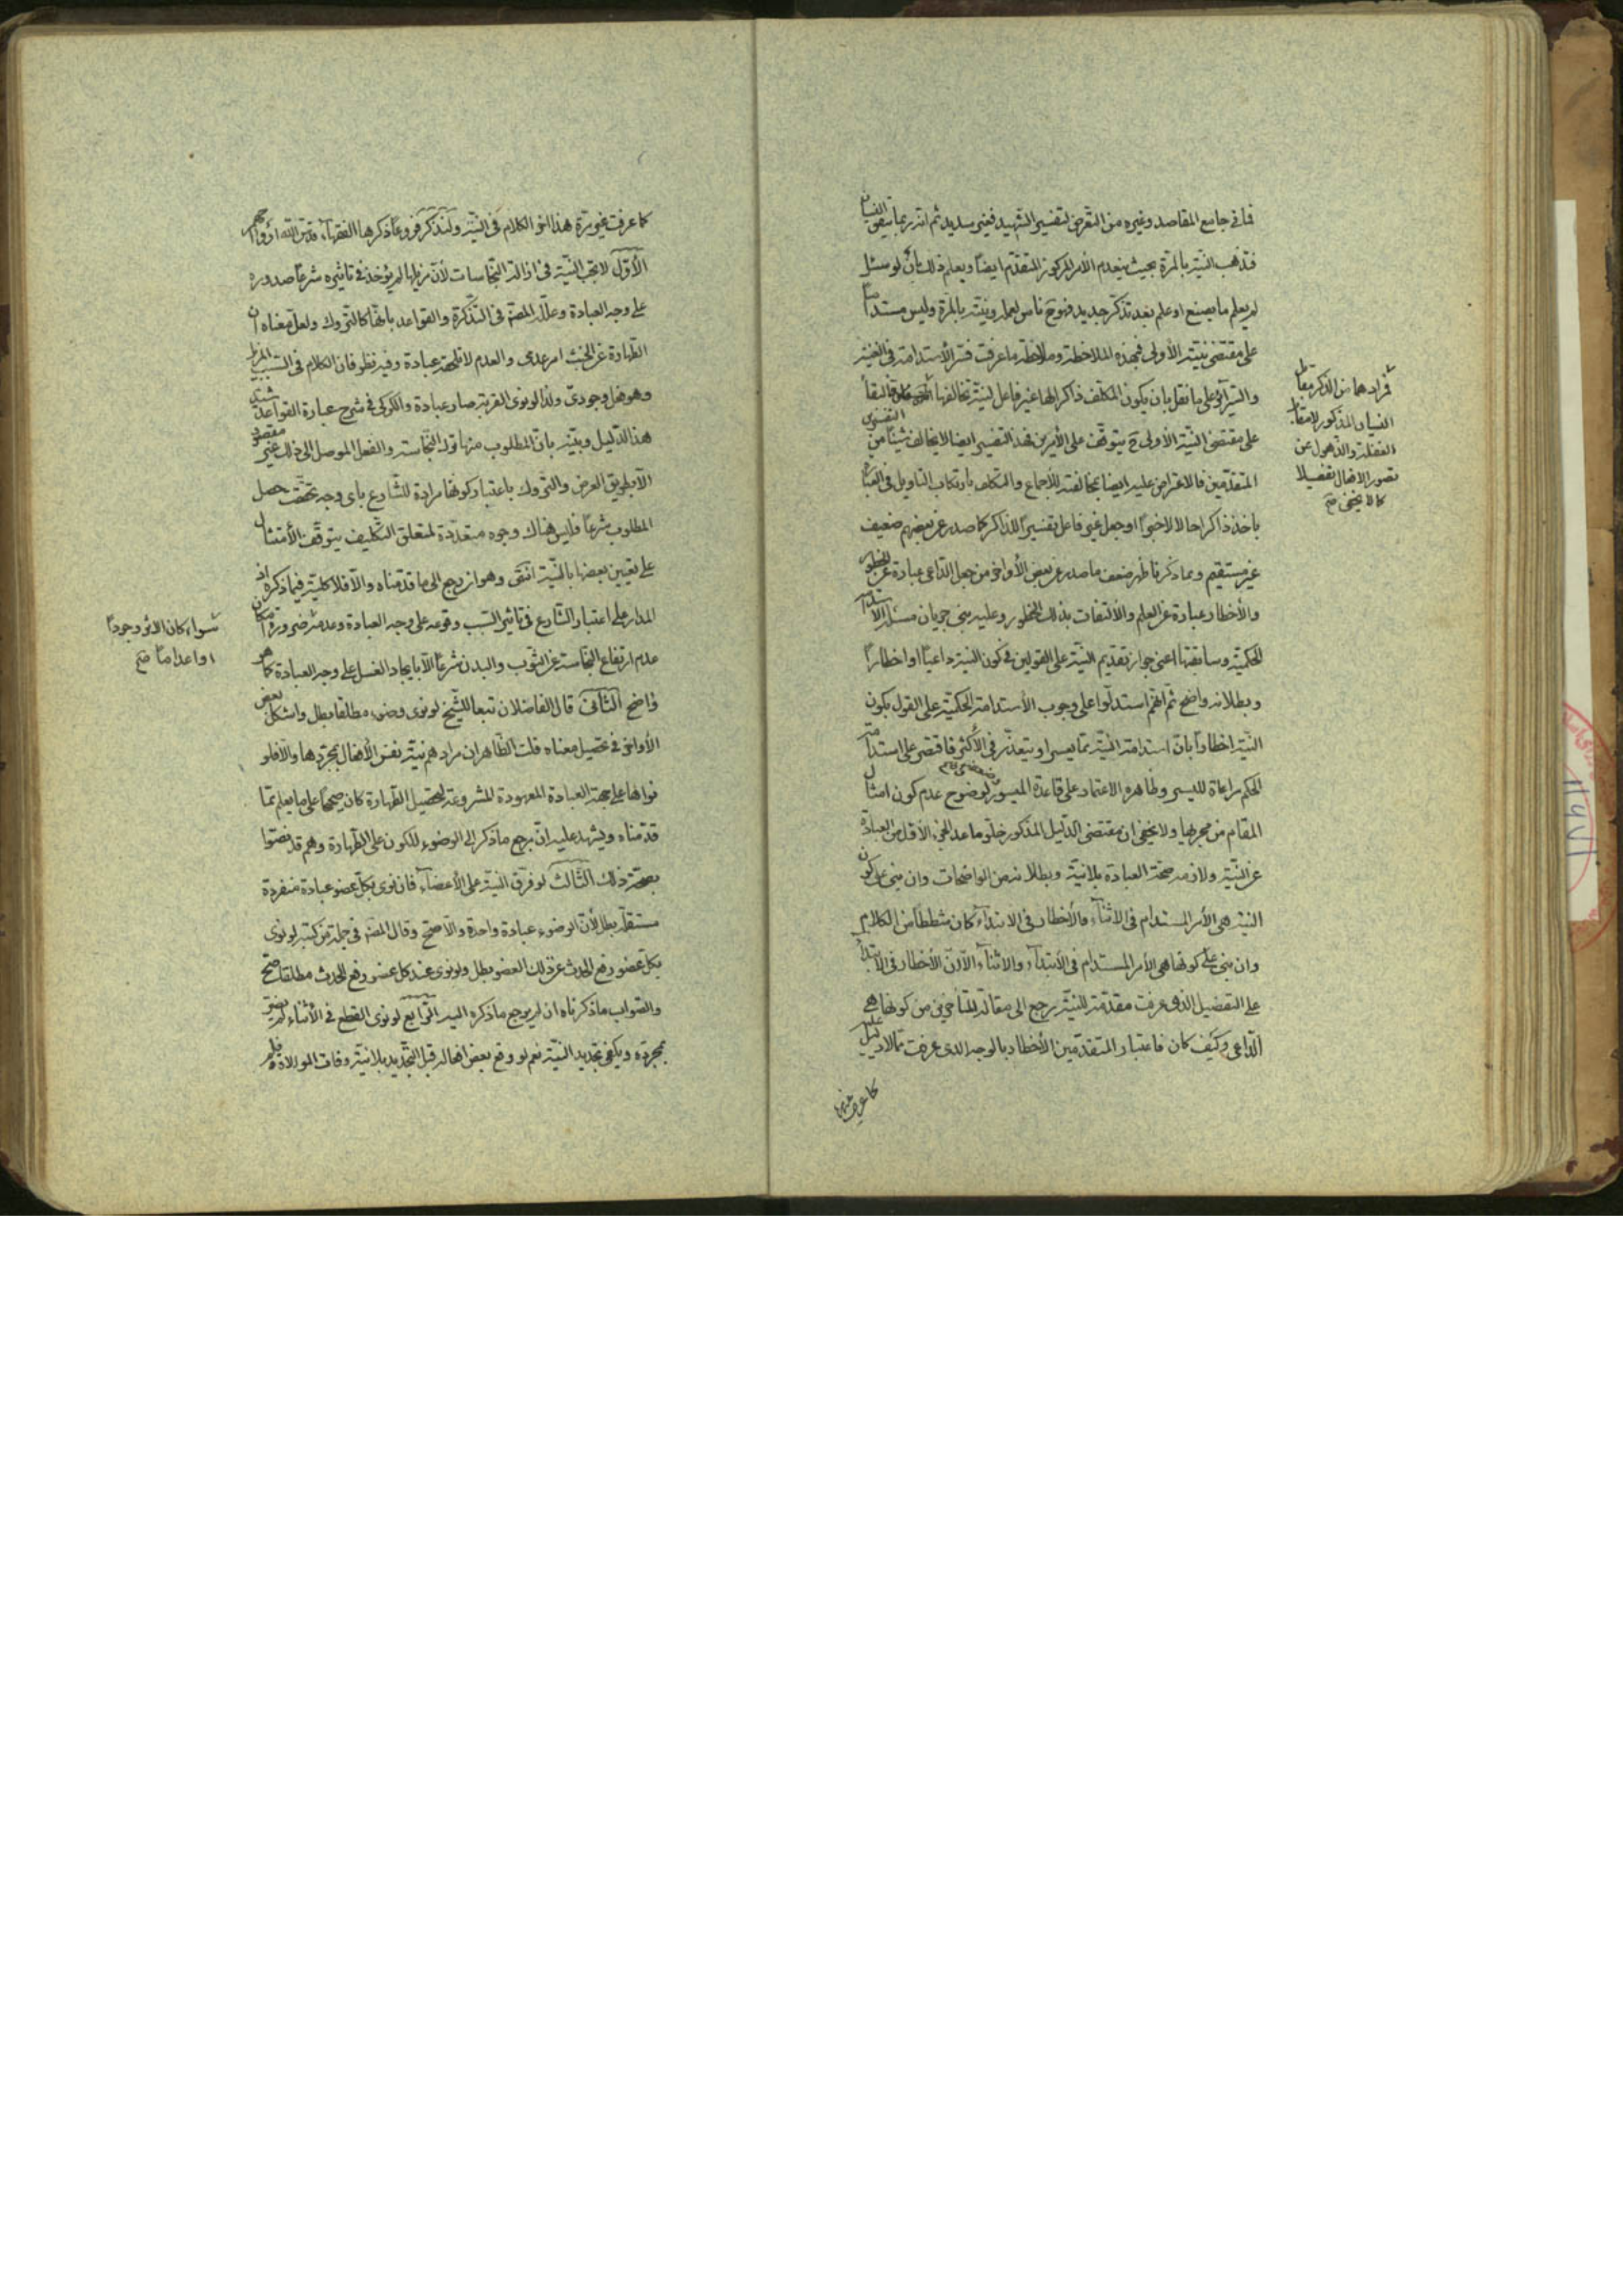 فما في جامع المقاصد وغيره من التعرض لتفسير الشهيد فغير سديد ثم انه ربما ينتهى النسيان
فتذهب النية بالمرة بحيث ينعدم الأمر المركوز المتقدم ايضا ويعلم ذلك بأن لو سئل
لم يعلم ما يصنع او علم بعد تذكر جديد فهو ح ناس لعمله ونيته بالمرة وليس مستداما
على مقتضى نيته الأولى فبهذه الملاحظة وملاحظة ما عرفت فسر الأستدامة في الغنية
والسرائر على ما نقل بان يكون المكلف ذاكرا لها غير فاعل لنية تخالفها
على مقتضى النية الأولى ح يتوقف على الأمرين فهذا التفسير ايضا لا يخالف شيئا من التفسيرين
المتقدمين فالاعتراض عليه ايضا بمخالفته للأجماع والتكلف بارتكاب التاويل في العبارة
باخذ ذاكرا حالا لا خبرا او جعل غير فاعل تفسيرا للذاكر كما صدر عن بعضهم ضعيف
غير مستقيم وبما ذكرنا ظهر ضعف ما صدر عن بعض الأواخر من جعل الداعى عبادة عن الخطور
والأخطار عبادة عن العلم والألتفات بذلك الخطور وعليه بنى جريان مسئلة الاستدامة
الحكمية وسابقتها اعنى جواز تقديم النية على القولين في كون النية داعيا او اخطارا
وبطلانه واضح ثم انهم استدلوا على وجوب الأستدامة الحكمية على القول بكون
النية اخطارا بان استدامة النية مما يعسر او يتعذر في الأكثر فاقتصر على استدامة
الحكم مراعاة لليسر وظاهره الاعتماد على قاعدة الميسور لوضوح عدم كون امثال
المقام من مجريها ولا يخفى ان مقتضى الدليل المذكور خلو ما عدا الجزء الأول من العبادة
عن النية ولازمه صحة العبادة بلا نية وبطلانه من الواضحات وان بنى على كون
النية هى الأمر المستدام في الاثناء والأخطار في الابتداء كان شططا من الكلام
وان بنى على كونها هى الأمر المستدام في الأبتداء والاثناء الا ان الأخطار في الابتداء
على التفصيل الذى عرفت مقدمة للنية يرجع الى مقالة المتأخرين من كونها هى
الداعى وكيف كان فاعتبار المتقدمين الأخطار بالوجه الذى عرفت مما لا دليل عليه
كما عرفت
فمرادهما من الذكر مقابل
النسيان المذكور لا مقابل
الغفلة والذهول عن
تصور الافعال تفصيلا
كما لا يخفى صح
كما عرفت غير مرة هذا اخر الكلام في النية ولنذكر فروعا ذكرها الفقهاء قدس الله ارواحهم
الأول لا تجب النية في ازالة النجاسات لأن مزيلها لم يؤخذ في تاثيره شرعا صدوره
على وجه العبادة وعلله المصنف في التذكرة والقواعد بانها كالتروك ولعل معناه ان
الطهارة عن الخبث امر عدمى والعدم لا يقع عبادة وفيه نظر فان الكلام في السبب المزيل
وهو فعل وجودى ولذا لو نوى القربة صار عبادة والكركى في شرح عبارة القواعد شيد
هذا الدليل وبينه بان المطلوب منها ترك النجاسة والفعل الموصل الى ذلك غير مقصود
الا بطريق العرض والتروك باعتبار كونها مرادة للشارع باى وجه تحققت حصل
المطلوب شرعا فليس هناك وجوه متعددة لمتعلق التكليف يتوقف الأمتثال
على تعيين بعضها بالنية انتهى وهو ان رجع الى ما قدمناه والا فلا كلية فيما ذكره اذ
المدار على اعتبار الشارع في تاثير السبب وقوعه على وجه العبادة وعدمه ضرورة امكان
عدم ارتفاع النجاسة عن الثوب والبدن شرعا الا بايجاد الغسل على وجه العبادة كما هو
واضح الثانى قال الفاضلان تبعا للشيخ لو نوى وضوء مطلقا بطل واشكل بعض
الأواخر في تحصيل معناه قلت الظاهر ان مرادهم نية نفس الأفعال بمجردها والا فلو
نواها على جهة العبادة المعهودة المشروعة لتحصيل الطهارة كان صحيحا على ما يعلم مما
قدمناه ويشهد عليه ان مرجع ما ذكر الى الوضوء للكون على الطهارة وهم قد نصوا
بصحة ذلك الثالث لو فرق النية على الأعضاء فان نوى بكل عضو عبادة منفردة
مستقلة بطل لأن الوضوء عبادة واحدة والا صح وقال المصنف في جملة من كتبه لو نوى
بكل عضو رفع الحدث عن ذلك العضو بطل ولو نوى عند كل عضو رفع الحدث مطلقا صح
والصواب ما ذكرناه ان لم يرجع ما ذكره اليه الرابع لو نوى القطع في الأثناء لم يضر
بمجرده ويكفى تجديد النية نعم لو وقع بعض افعاله قبل التجديد بلا نية وفات الموالاة
سواء كان الاثر وجودا
او اعداما صح